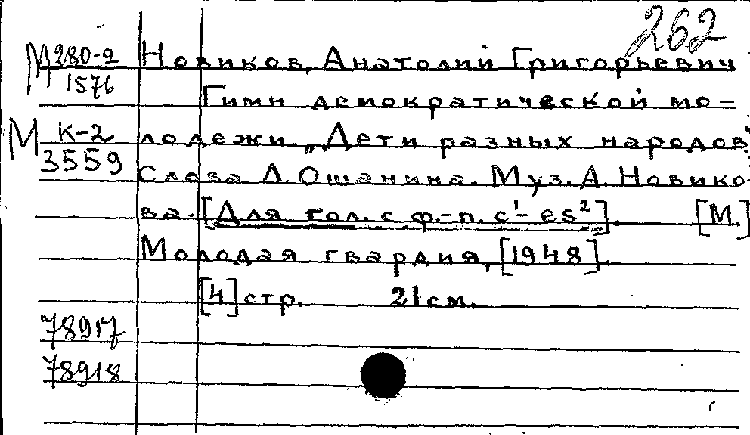 262
М 280-2 Новиков, Анатолий Григорьевич
1576
Гимн демократической мо-
М К-2 лодежи „Дети разных народов"
3559
Слова Л. Ошанина. Муз. А. Новико-
ва. [Для гол. с ф.-п. c¹- es²]. [М.]
Молодая гвардия, [1948].
[4] стр. 21 см.
78917
78918